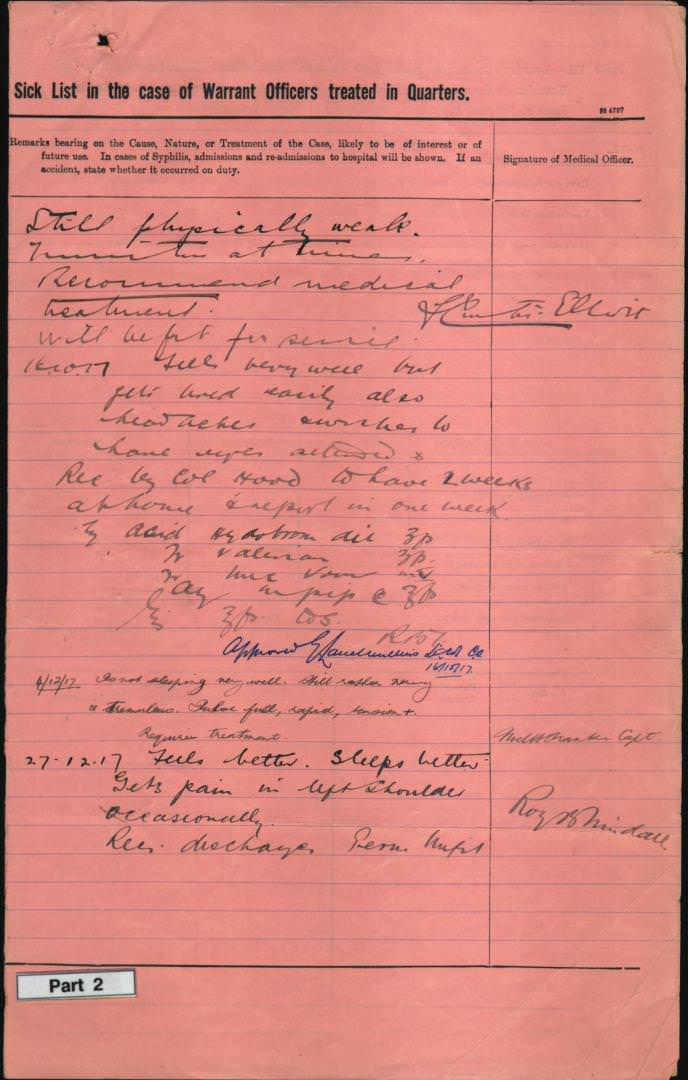 Sick List in the case of Warrant Officers treated in Quarters.
Remarks bearing on the Cause, Nature, or Treatment of the Case, likely to be of interest or of
future use. In cases of Syphilis, admissions and re-admissions to hospital will be shown. If an
accident, state whether it occurred on duty.
Signature of Medical Officer.
Still physically weak.
at times.
Recommend medical
treatment.
Will be fit for
16.10.17 Feels very well but
gets tired easily also
headaches & wishes to
have eyes
Rec by Col Hood to have 2 weeks
at home & report in one week.
Acid Hydobrom dil
Valerian
Approved
16/10/17
4/12/17 Is not sleeping very well. Still rather
& tremulous. Pulse full, rapid, tension +.
Requires treatment. Capt.
27.12.17 Feels better. Sleeps better
Gets pain in left shoulder
occasionally.
Rec. discharge Perm Unfit
Part 2